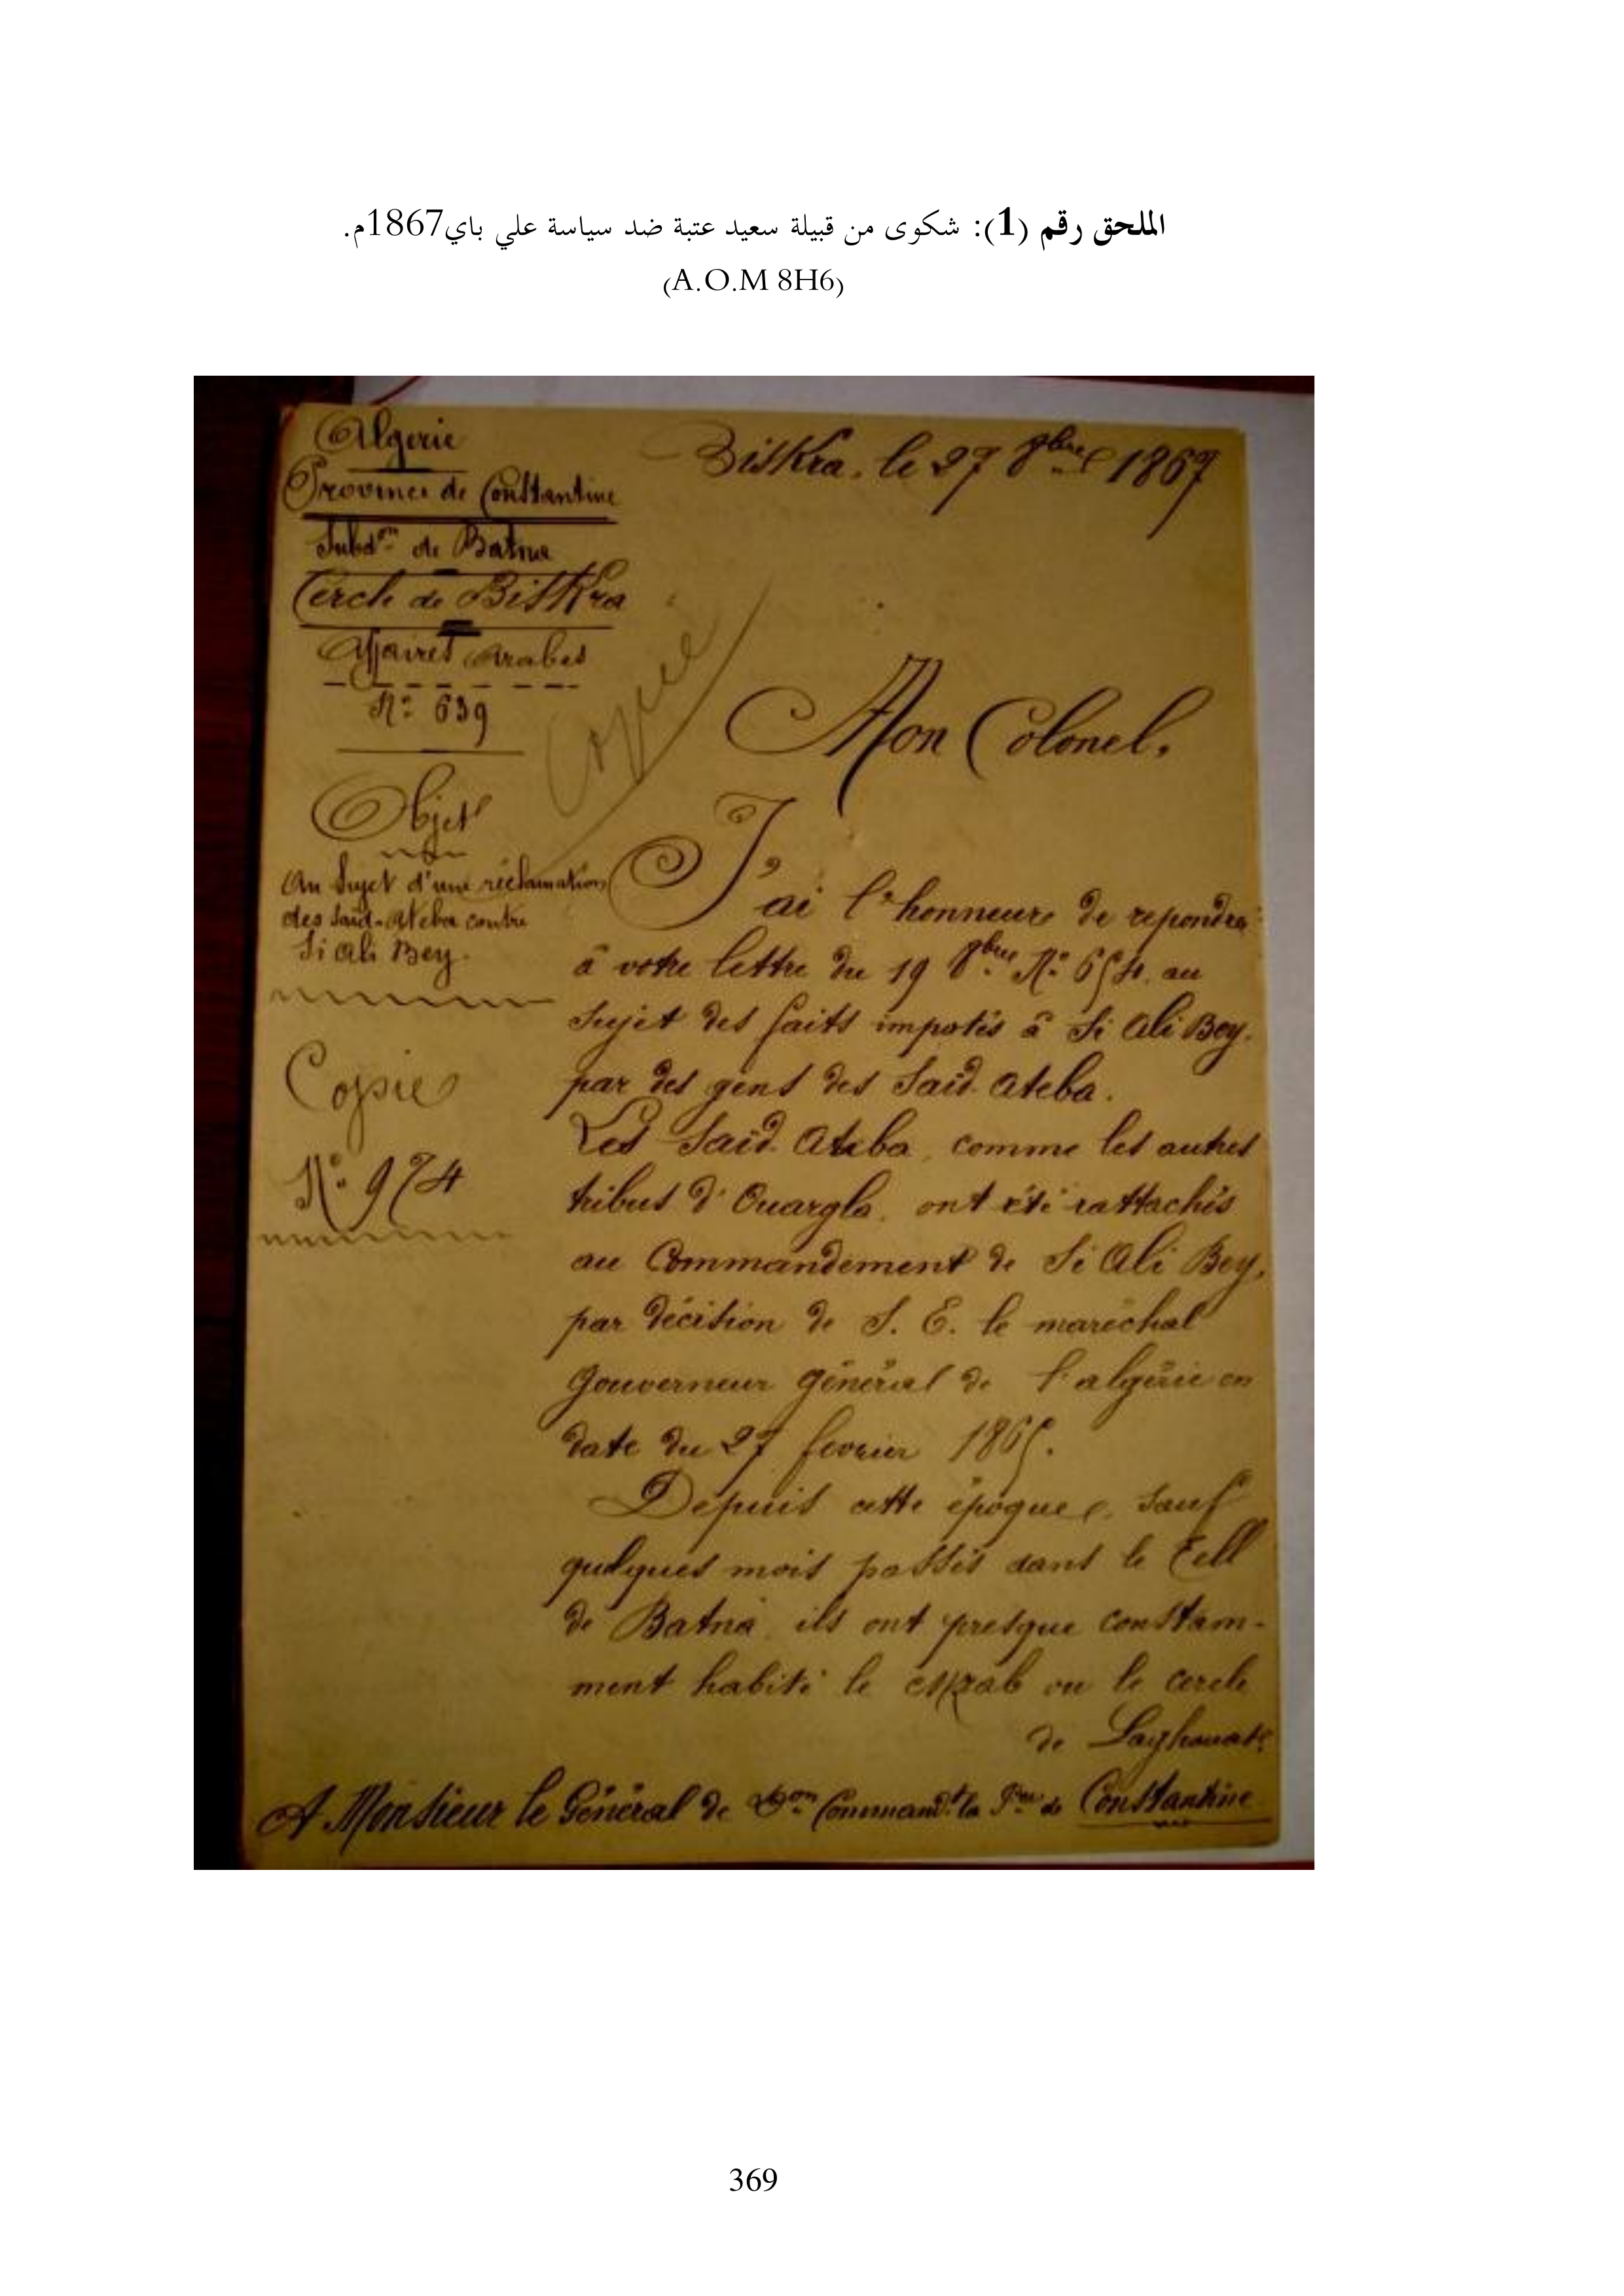 الملحق رقم (1): شكوى من قبيلة سعيد عتبة ضد سياسة علي باي1867م.
(A.O.M 8H6)
Algerie
Province de Constantine
Subdon de Batna
Cercle de Biskra
Affaires Arabes
No 639
Objet
Au Sujet d'une réclamation
des Saïd-Ateba contre
Si Ali Bey.
Copie
No 974
Copie
Biskra, le 27 8bre 1867
Mon Colonel.
J'ai l'honneur de repondre
à votre lettre du 19 8bre No 654. au
Sujet des faits imputés à Si Ali Bey.
par des gens des Saïd Ateba.
Les Saïd Ateba, comme les autres
tribus d'Ouargla, ont été rattachés
au Commandement de Si Ali Bey,
par décision de S. E. le maréchal
Gouverneur général de l'algérie en
date du 27 fevrier 1865.
Depuis cette époque, Sauf
quelques mois passés dans le Tell
de Batna, ils ont presque constam-
ment habité le Mzab ou le cercle
de Laghouat
A Monsieur le Général de Don Commandt la Pce de Constantine
369